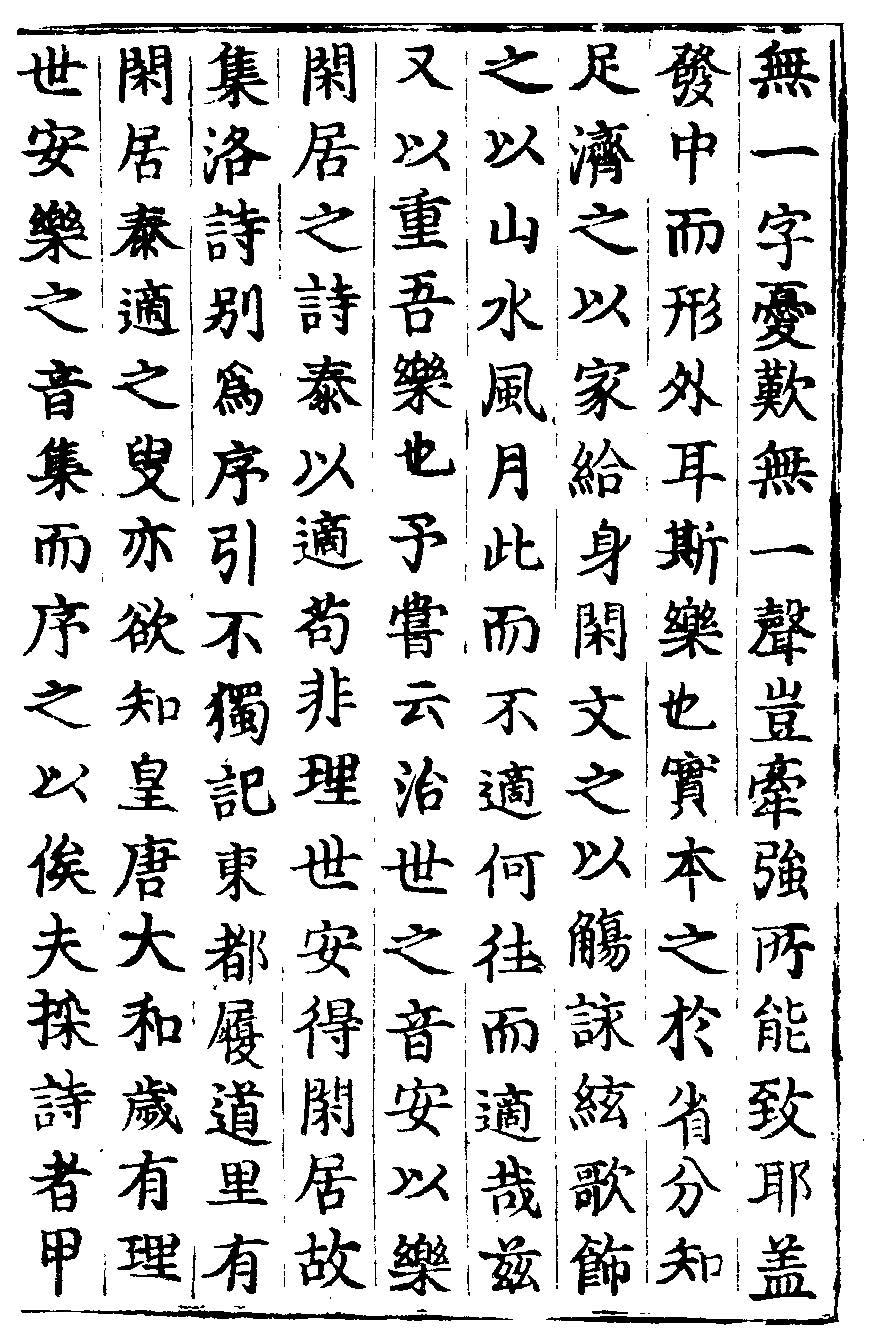 無一字憂歎無一聲豈牽強所能致耶盖
發中而形外耳斯樂也實本之於省分知
足濟之以家給身閑文之以觴詠絃歌飾
之以山水風月此而不適何往而適哉兹
又以重吾樂也予嘗云治世之音安以樂
閑居之詩泰以適苟非理世安得閑居故
集洛詩别爲序引不獨記東都履道里有
閑居泰適之叟亦欲知皇唐大和歲有理
世安樂之音集而序之以俟夫採詩者甲